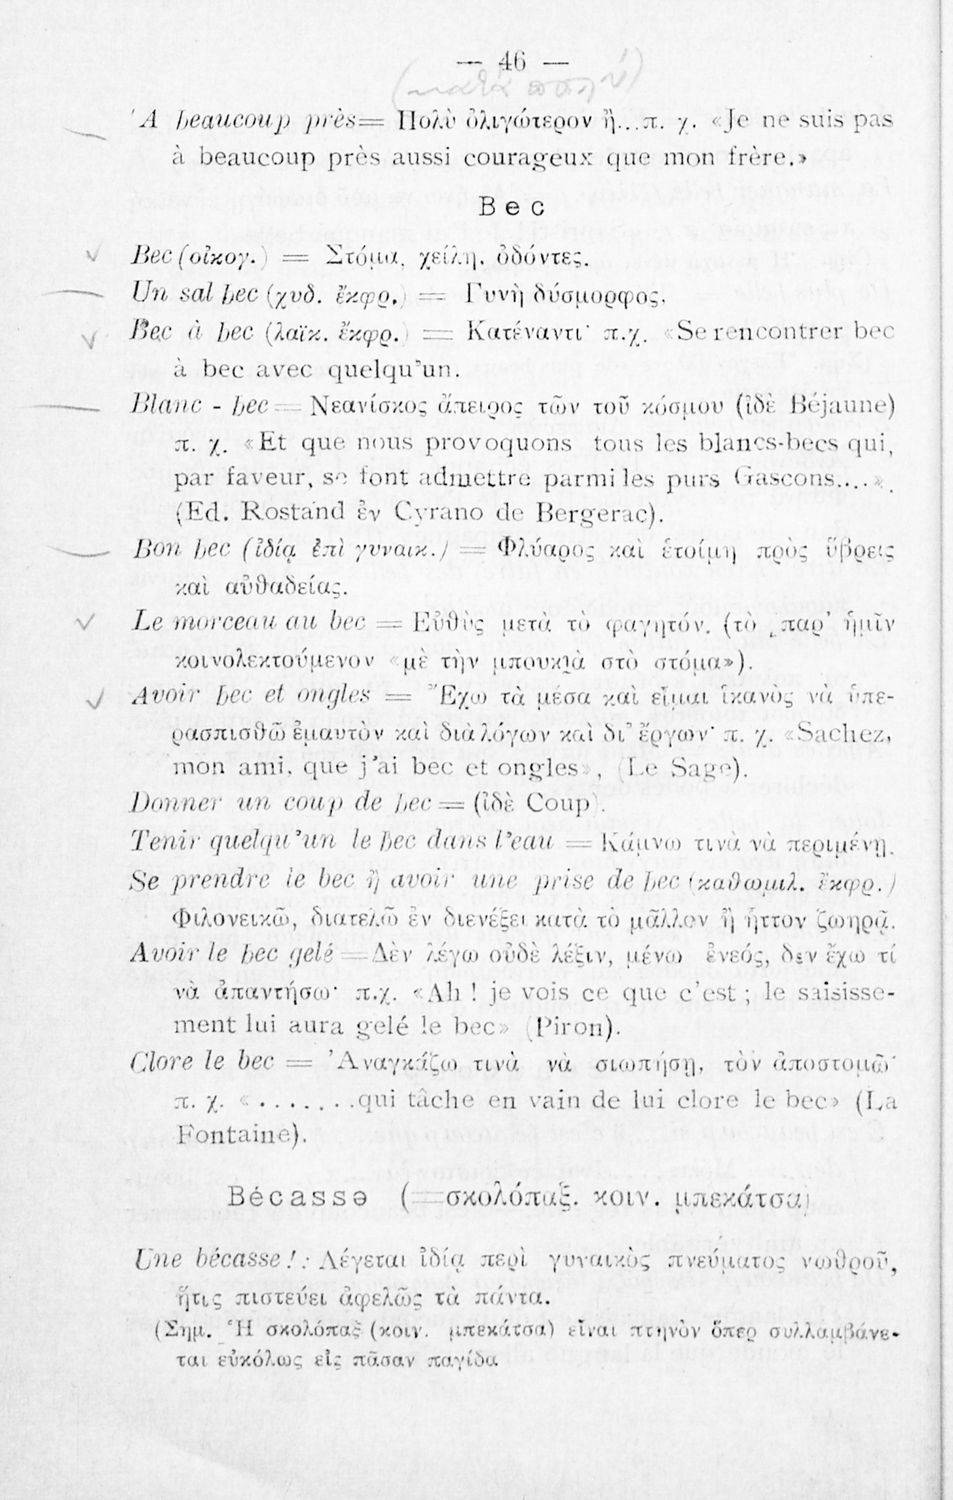 — 46 —
(κατὰ πολὺ)
'A beaucoup près= Πολὺ ὀλιγώτερον ἢ...π. χ. «Je ne suis pas
à beaucoup près aussi courageux que mon frère.»
Bec
Bec (οἰκογ.) = Στόμα, χείλη, ὀδόντες.
Un sal bec (χυδ. ἔκφρ.) = Γυνὴ δύσμορφος.
Bec à bec (λαϊκ. ἔκφρ.) = Κατέναντι· π.χ. «Se rencontrer bec
à bec avec quelqu'un.
Blanc - bec = Νεανίσκος ἄπειρος τῶν τοῦ κόσμου (ἰδὲ Béjaune)
π. χ. «Et que nous provoquons tous les blancs-becs qui,
par faveur, se font admettre parmi les purs Gascons....».
(Ed. Rostand ἐν Cyrano de Bergerac).
Bon bec (ἰδίᾳ ἐπὶ γυναικ.) = Φλύαρος καὶ ἑτοίμη πρὸς ὕβρεις
καὶ αὐθαδείας.
Le morceau au bec = Εὐθὺς μετὰ τὸ φαγητόν. (τὸ παρ' ἡμῖν
κοινολεκτούμενον «μὲ τὴν μπουκιὰ στὸ στόμα»).
Avoir bec et ongles = Ἔχω τὰ μέσα καὶ εἶμαι ἱκανὸς νὰ ὑπε-
ρασπισθῶ ἐμαυτὸν καὶ διὰ λόγων καὶ δι' ἔργων· π. χ. «Sachez,
mon ami, que j'ai bec et ongles», (Le Sage).
Donner un coup de bec = (ἰδὲ Coup).
Tenir quelqu'un le bec dans l'eau = Κάμνω τινὰ νὰ περιμένῃ.
Se prendre le bec ἢ avoir une prise de bec (καθωμιλ. ἔκφρ.)
Φιλονεικῶ, διατελῶ ἐν διενέξει κατὰ τὸ μᾶλλον ἢ ἧττον ζωηρᾷ.
Avoir le bec gelé = Δὲν λέγω οὐδὲ λέξιν, μένω ἐνεός, δεν ἔχω τί
νὰ ἀπαντήσω· π.χ. «Ah ! je vois ce que c'est ; le saisisse-
ment lui aura gelé le bec» (Piron).
Clore le bec = Ἀναγκάζω τινὰ νὰ σιωπήσῃ, τὸν ἀποστομῶ·
π. χ. «.......qui tâche en vain de lui clore le bec» (La
Fontaine).
Bécasse (=σκολόπαξ. κοιν. μπεκάτσα)
Une bécasse ! : Λέγεται ἰδίᾳ περὶ γυναικὸς πνεύματος νωθροῦ,
ἥτις πιστεύει ἀφελῶς τὰ πάντα.
(Σημ. Ἡ σκολόπαξ (κοιν. μπεκάτσα) εἶναι πτηνὸν ὅπερ συλλαμβάνε-
ται εὐκόλως εἰς πᾶσαν παγίδα